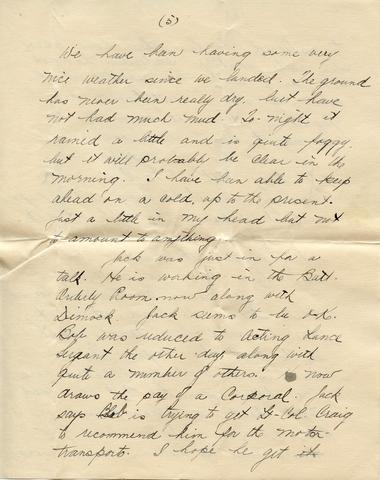 (5)
We have been having some very
nice weather since we landed. The ground
has never been really dry, but have
not had much mud. To-night it
rained a little and is quite foggy,
but it will probably be clear in the
morning. I have been able to keep
ahead on a cold, up to the present.
Just a little in my head but not
to amount to anything.
Jack was just in for a
talk. He is working in the Batt.
Orderly Room now along with
Dimock. Jack seems to be O.K.
was reduced to Acting Lance
Sergant the other day, along with
quite a number of others. now
draws the pay of a Corporal. Jack
says Bob is trying to get Lt-Col. Craig
to recommend him for the motor
transport. I hope he get it